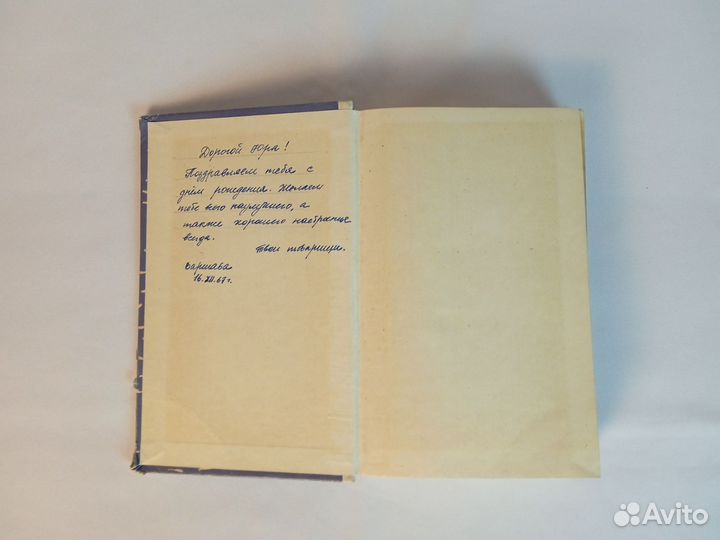 Дорогой Юра!
Поздравляем тебя с
днём рождения. Желаем
тебе всего наилучшего, а
также хорошего настроенья
всегда.
Твои товарищи.
Варшава
16.XII.67 г.
Avito